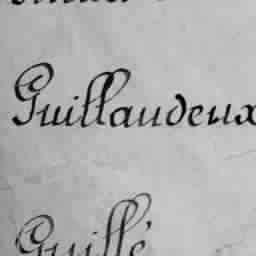 Guillaudeux
Guillé